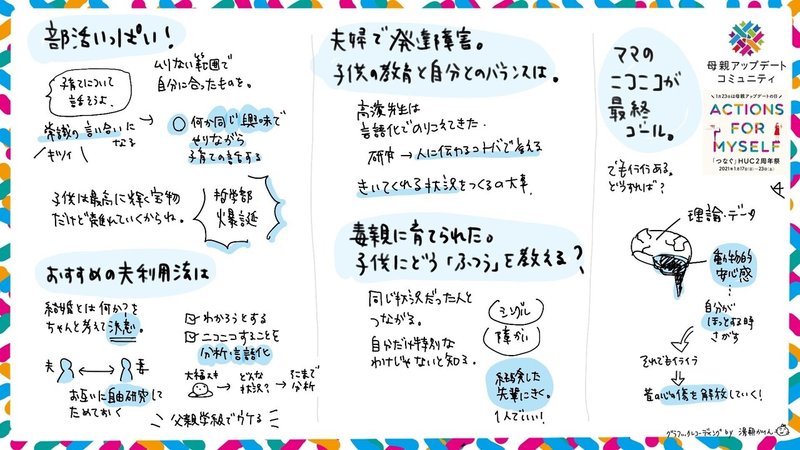 部活いっぱい!
子育てについて
話そうよ。
常識の言い合いになる
キツイ
ムリない範囲で
自分に合ったものを。
何か同じ興味で
やりながら
子育ての話する
子供は最高に輝く宝物
だけど離れていくからね。
哲学部
爆誕
おすすめの夫利用法は
結婚とは何か?を
ちゃんと考えて決意。
夫
妻
お互いに自由研究して
ためておく
わかろうとする
ニコニコすることを
分析・言語化
どんな
状況?
そこまで
分析
父親学級でウケる
夫婦で発達障害。
子供の教育と自分とのバランスは。
高濱先生は
言語化でのりこえてきた。
研究→人に伝わるコトバで考える
きいてくれる状況をつくるの大事。
毒親に育てられた。
子供にどう「ふつう」を教える?
同じ状況だった人と
つながる。
自分だけ特別な
わけじゃないと知る。
シングル
障がい
経験した
先輩にきく。
1人でいい!
ママの
ニコニコが
最終
ゴール。
母親アップデート
コミュニティ
1月23日は母親アップデートの日
ACTIONS
FOR
MYSELF
「つなぐ」HUC2周年祭
2021年1月17日(日)―23日(土)
でもイライラある。
どうすれば?
理論・データ
動物的
安心感
自分が
ほっとする時
さがす
それでもイライラ
昔の心の傷を解放していく!
グラフィックレコーディング by